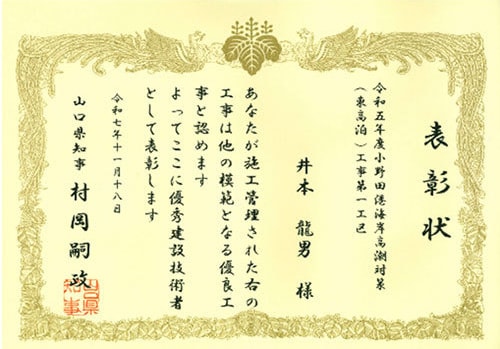 表彰状
令和五年度小野田港海岸高潮対策
(東高泊)工事第一工区
井本 龍男 様
あなたが施工管理された右の
工事は他の模範となる優良工
事と認めます
よってここに優秀建設技術者
として表彰します
令和七年十一月十八日
山口県知事 村岡嗣政